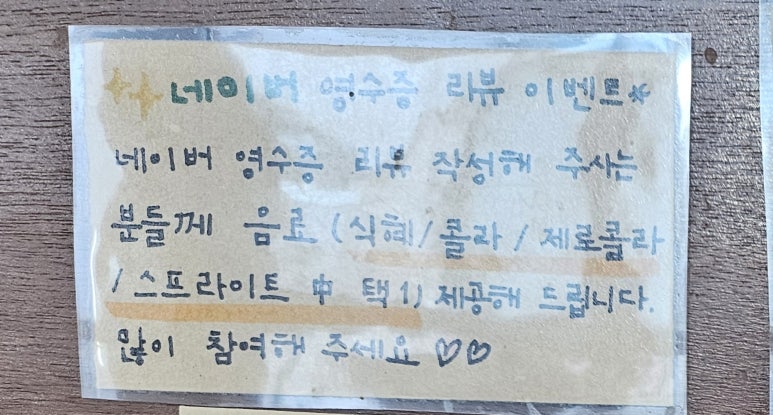 네이버 영수증 리뷰 이벤트*
네이버 영수증 리뷰 작성해 주시는
분들께 음료 (식혜/콜라/제로콜라
/스프라이트 中 택1) 제공해 드립니다.
많이 참여해 주세요 ♡♡